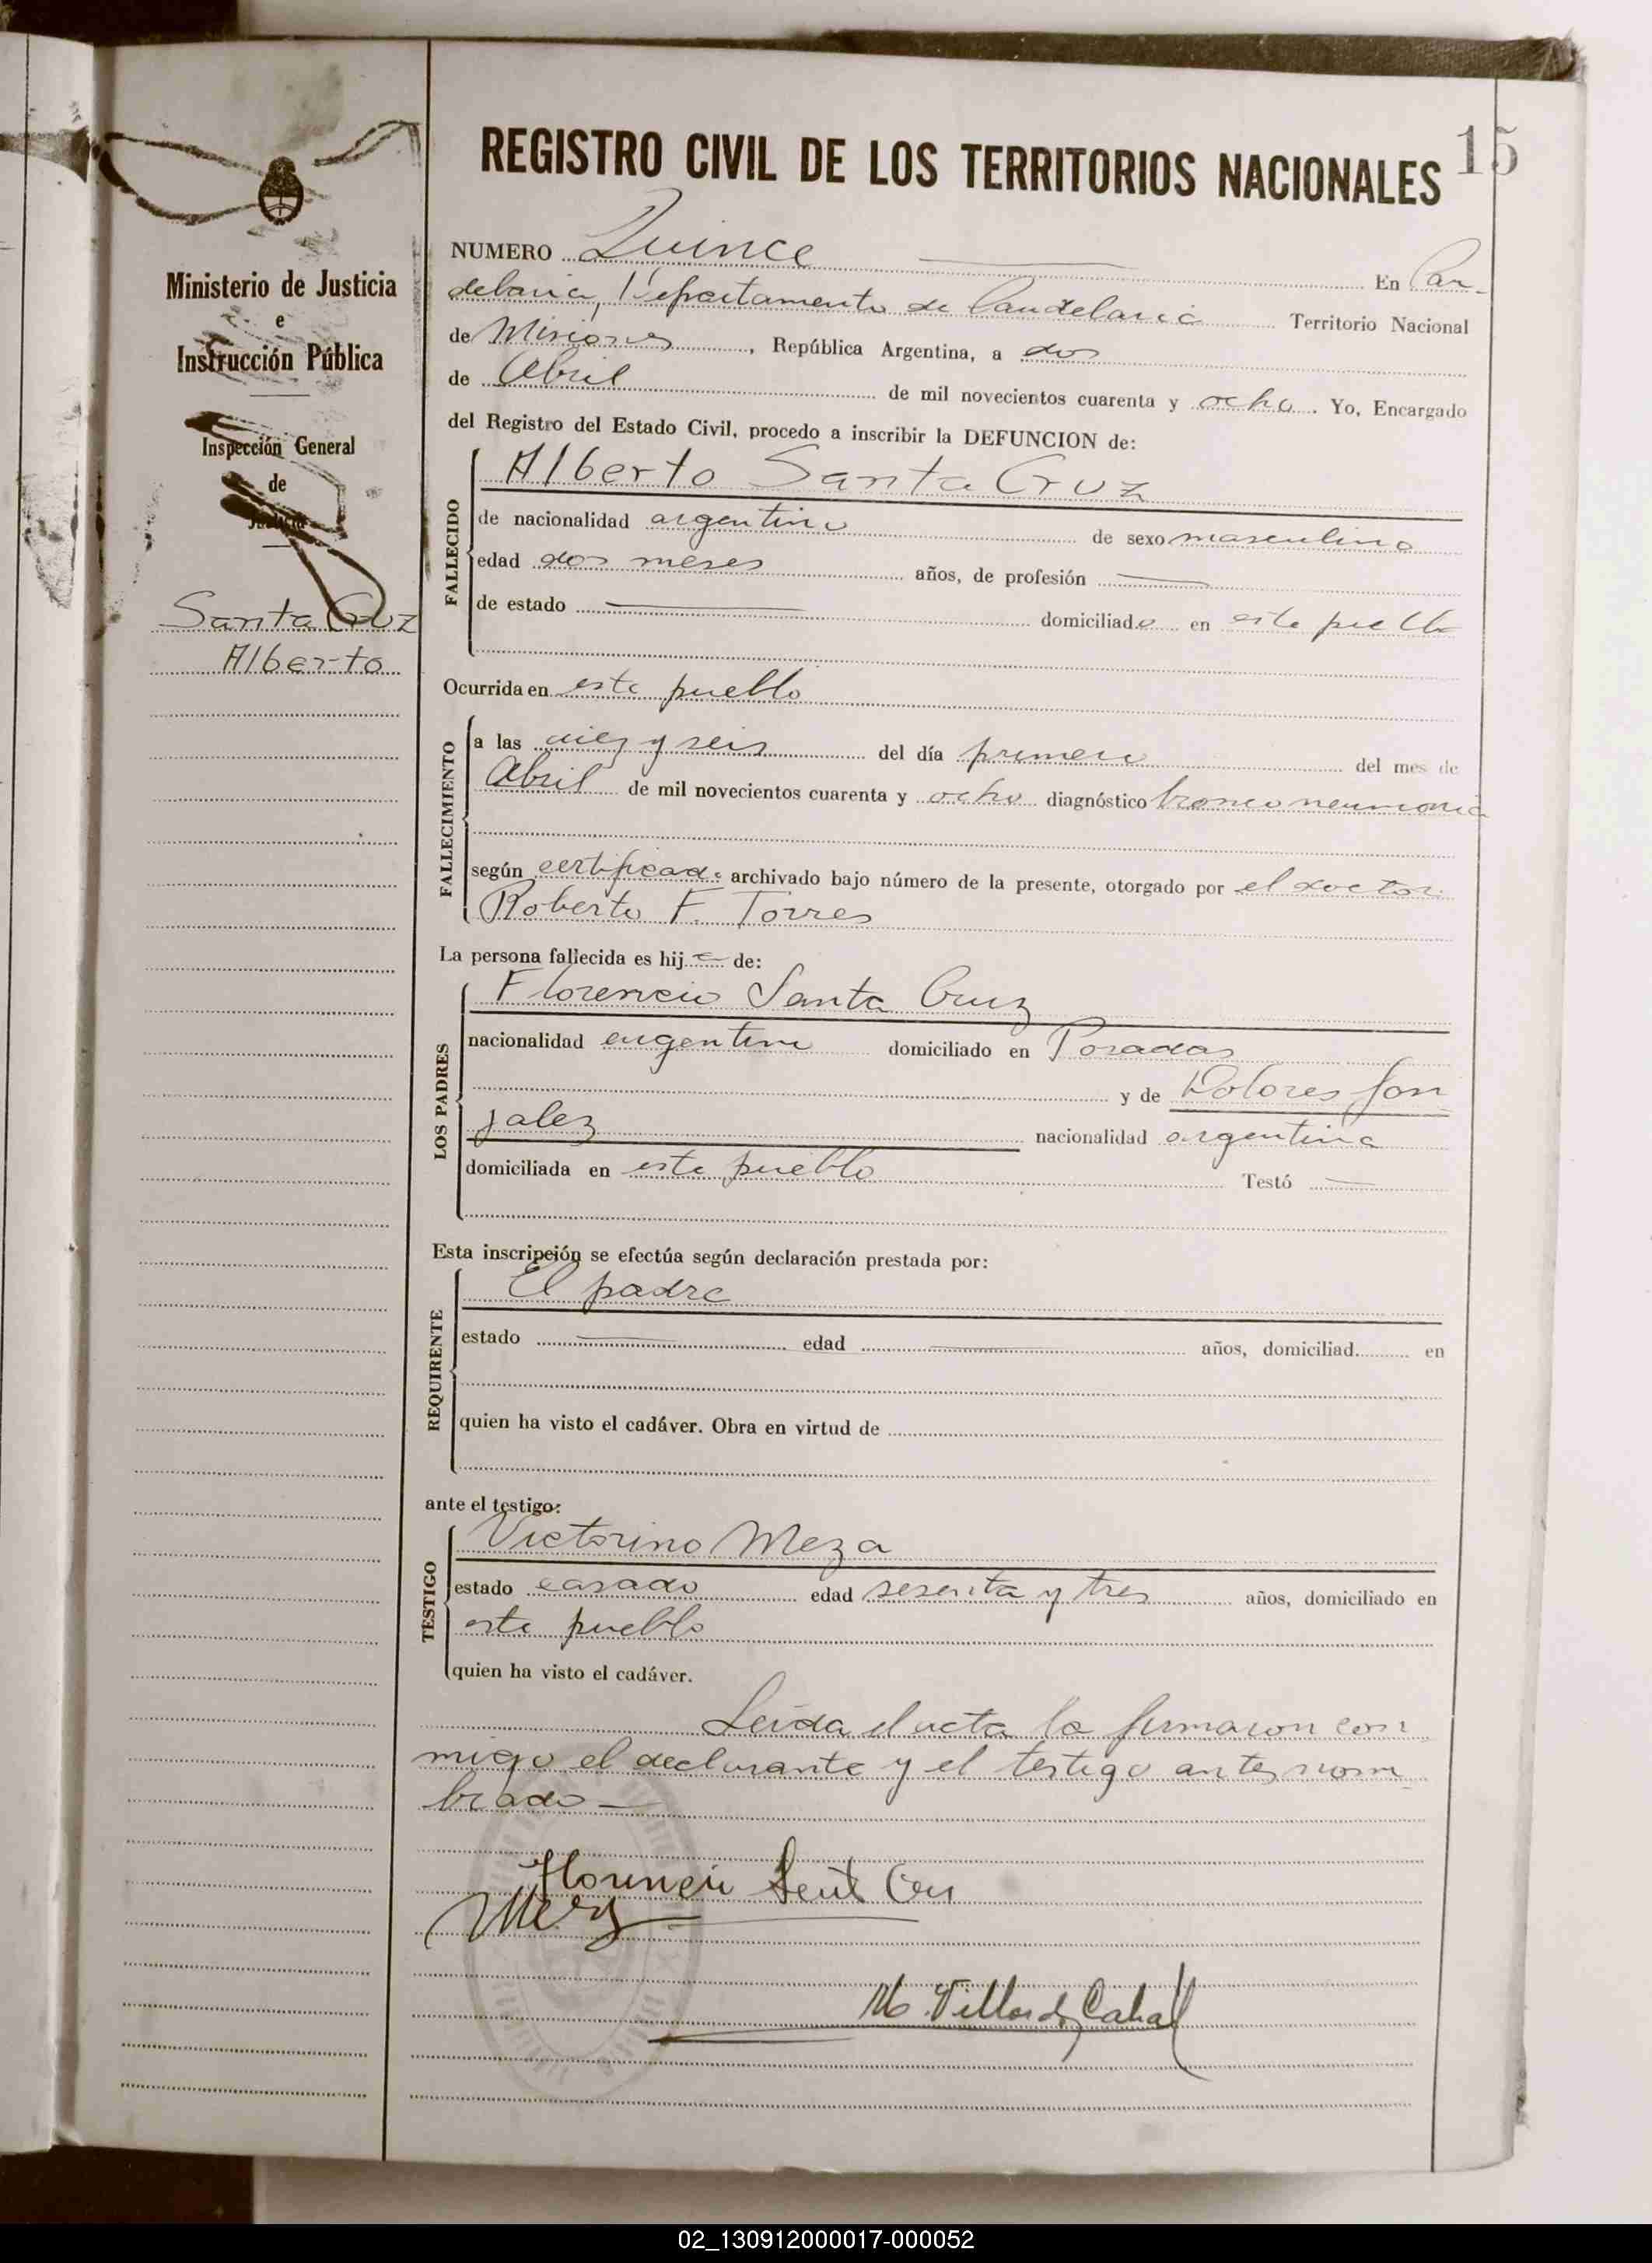 15
REGISTRO CIVIL DE LOS TERRITORIOS NACIONALES
Ministerio de Justicia
e
Instrucción Pública
Inspección General
de
Justicia
Santa Cruz
Alberto
NUMERO Quince En Can-
delaria, Departamento de Candelaria Territorio Nacional
de Misiones, República Argentina, a dos
de Abril de mil novecientos cuarenta y ocho. Yo, Encargado
del Registro del Estado Civil, procedo a inscribir la DEFUNCION de:
FALLECIDO
Alberto Santa Cruz
de nacionalidad argentino de sexo masculino
edad dos meses años, de profesión —
de estado — domiciliado en este pueblo
Ocurrida en este pueblo
FALLECIMIENTO
a las diez y seis del día primero del mes de
Abril de mil novecientos cuarenta y ocho diagnóstico bronconeumonia
según certificado archivado bajo número de la presente, otorgado por el doctor
Roberto F. Torres
La persona fallecida es hijo de:
LOS PADRES
Florencio Santa Cruz
nacionalidad argentino domiciliado en Posadas
y de Dolores Gon
zalez nacionalidad argentina
domiciliada en este pueblo Testó —
Esta inscripción se efectúa según declaración prestada por:
REQUIRENTE
El padre
estado — edad — años, domiciliad en
quien ha visto el cadáver. Obra en virtud de
ante el testigo:
TESTIGO
Victorino Meza
estado casado edad sesenta y tres años, domiciliado en
este pueblo
quien ha visto el cadáver.
Leida el acta la firmaron con
migo el declarante y el testigo antes nom
brado —
Florencio Sant Cru
Meza
02_130912000017-000052